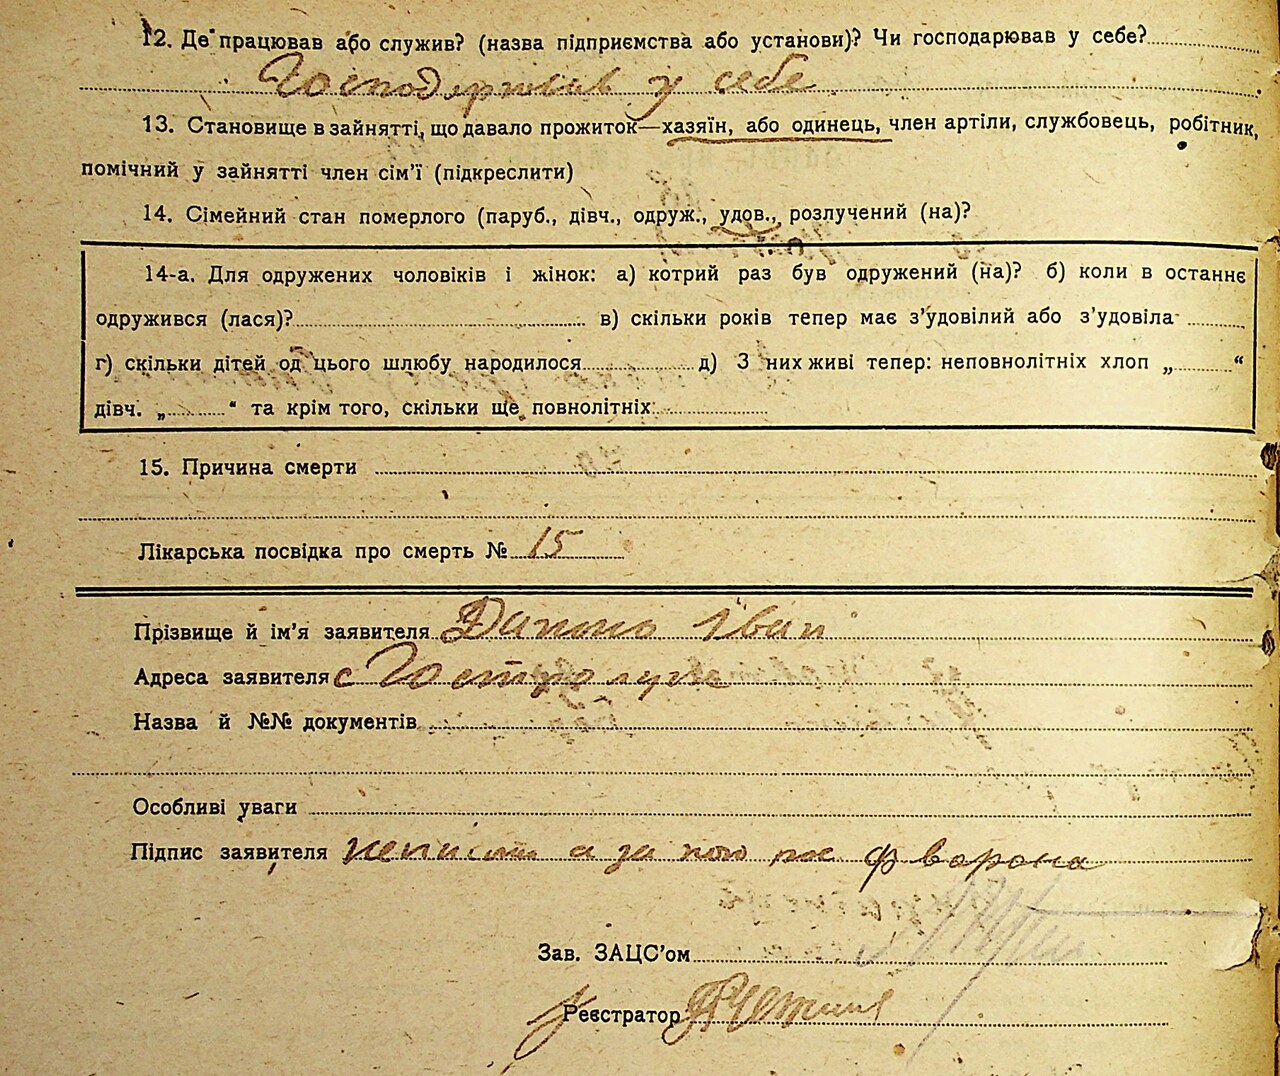 12. Де працював або служив? (назва підприємства або установи)? Чи господарював у себе?
Господарював у себе
13. Становище в зайнятті, що давало прожиток—хазяїн, або одинець, член артіли, службовець, робітник,
помічний у зайнятті член сім’ї (підкреслити)
14. Сімейний стан померлого (паруб., дівч., одруж., удов., розлучений (на)?
14-а. Для одружених чоловіків і жінок: а) котрий раз був одружений (на)? б) коли в останнє
одружився (лася)? в) скільки років тепер має з’удовілий або з’удовіла
г) скільки дітей од цього шлюбу народилося д) З них живі тепер: неповнолітніх хлоп „ “
дівч. „ “ та крім того, скільки ще повнолітніх:
15. Причина смерти
Лікарська посвідка про смерть № 15
Прізвище й ім’я заявителя Іван
Адреса заявителя с Гостролуче
Назва й №№ документів
Особливі уваги
Підпис заявителя а за Ворона
Зав. ЗАЦС’ом
Реєстратор